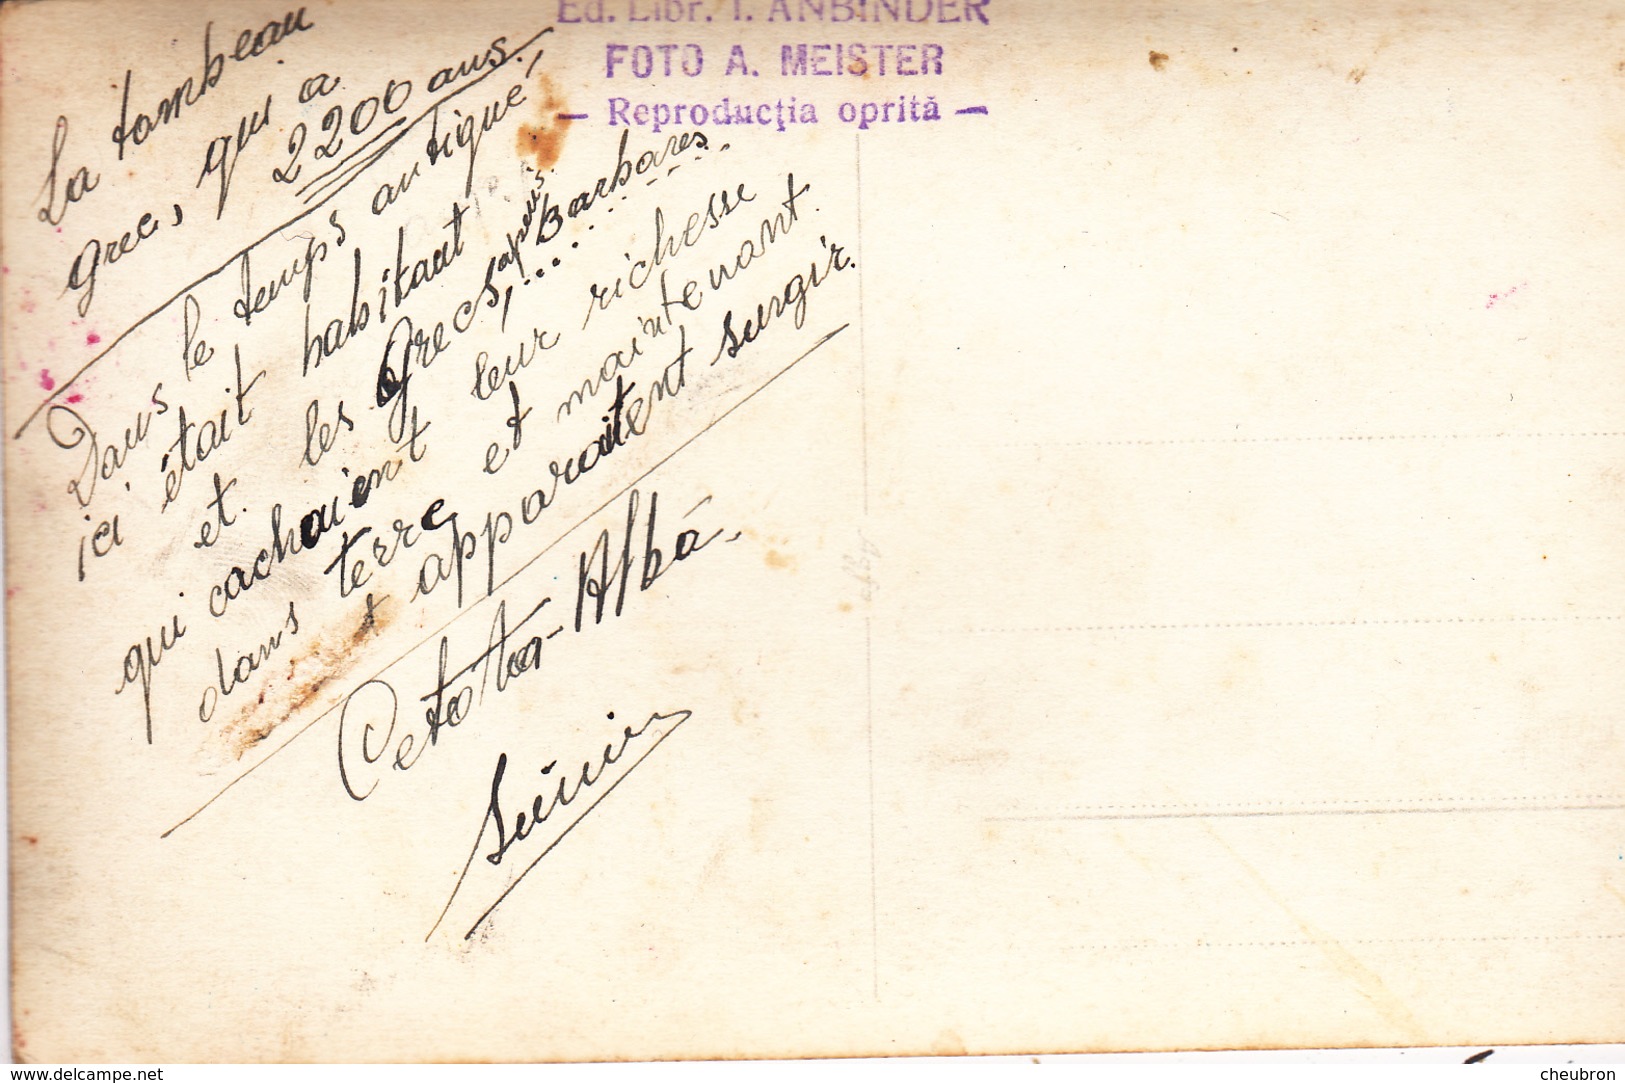 Ed. Libr. I. ANBINDER
FOTO A. MEISTER
— Reproducţia oprită —
La tombeau
grec, qui a
2200 ans.
Dans le temps antiqué,
ici était habitant
et les Grecs, après Barbares
qui cachaient leur richesse
dans terre et maintenant.
apparaitent surgir.
Cetatea-Albá.
www.delcampe.net
cheubron